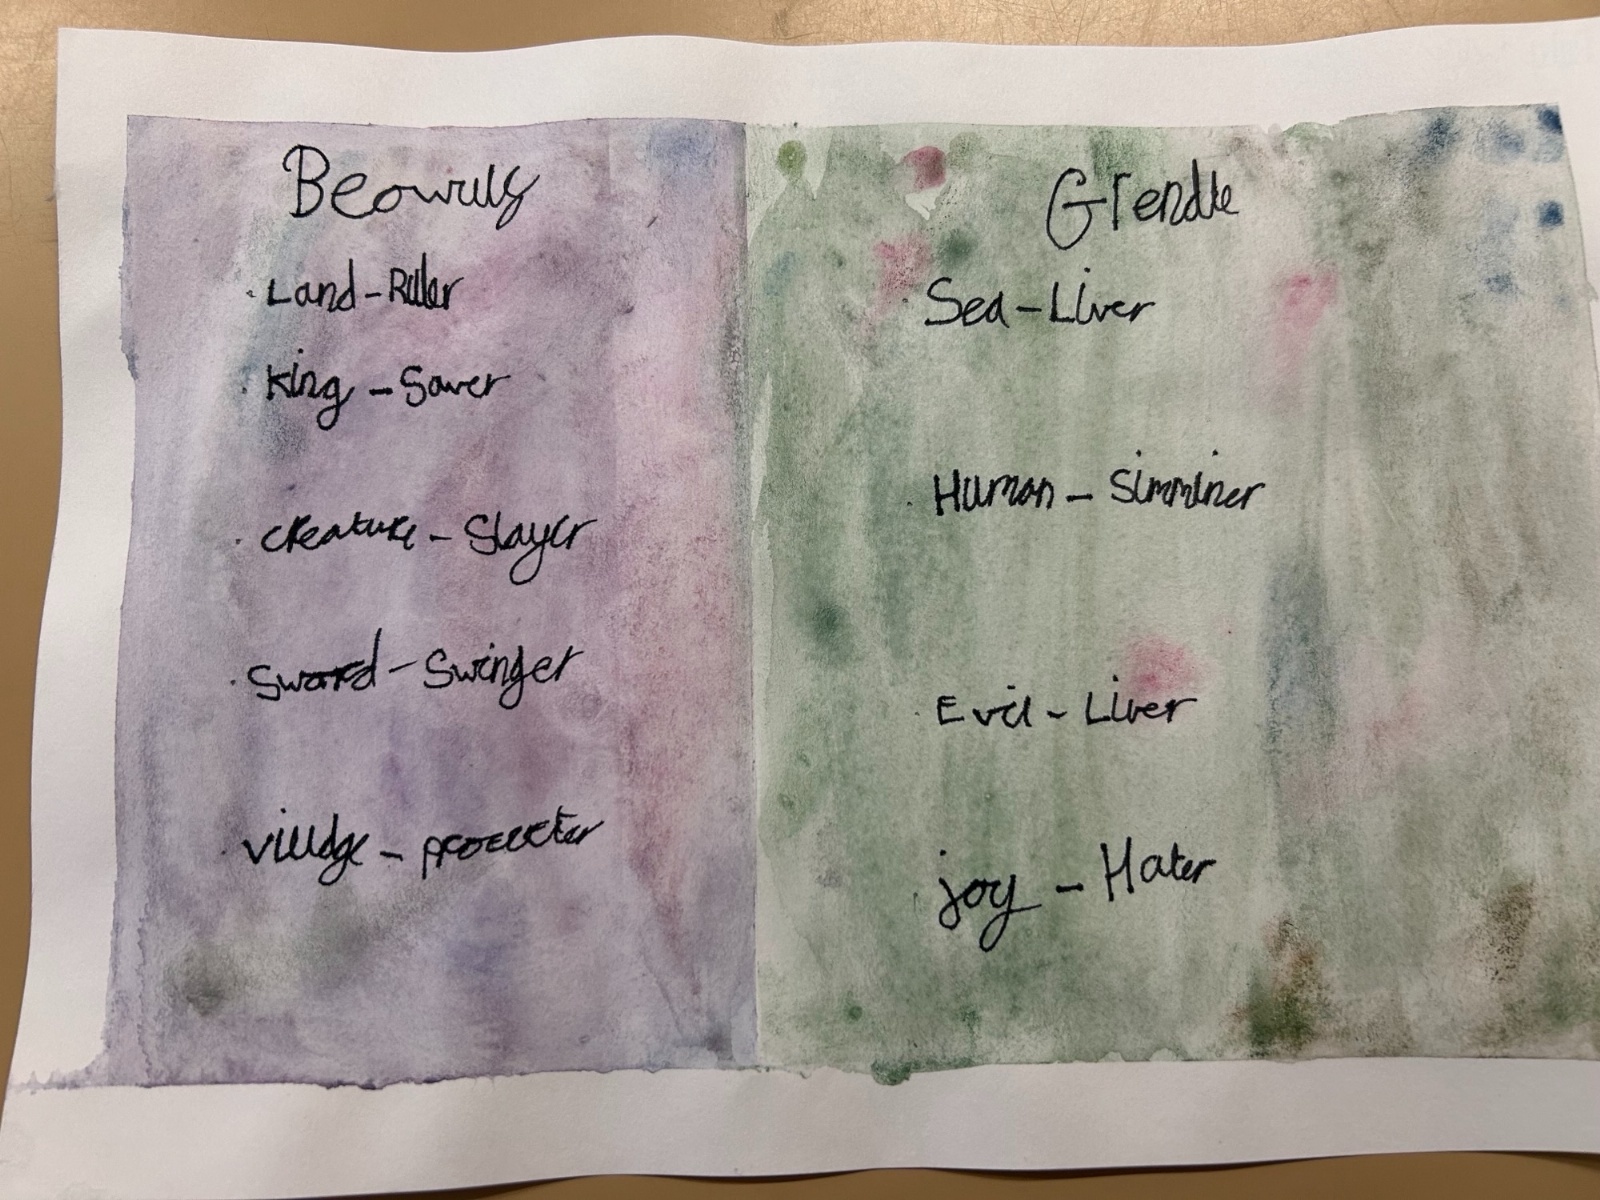 Beowulf
Land-Ruler
King - Saver
creature - Slayer
Sword - Swinger
village - protecter
Grendle
Sea-Liver
Human - Simminer
Evil - Liver
joy - Hater